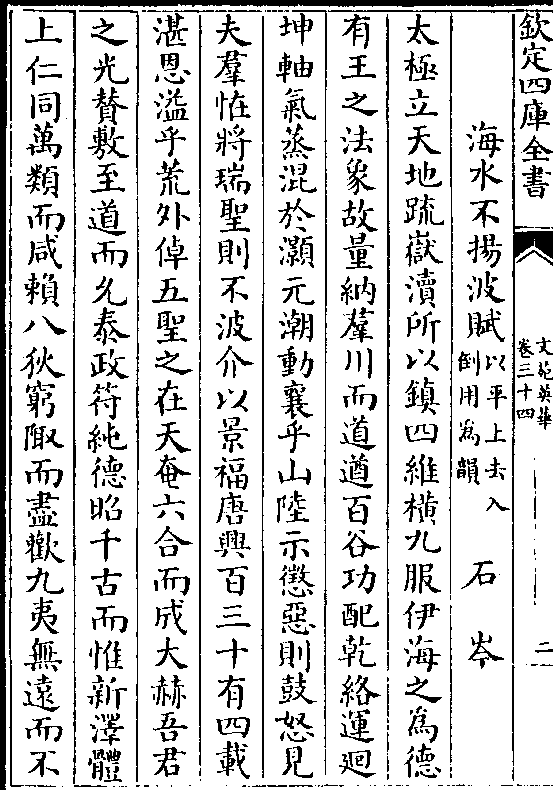 欽定四庫全書
文苑英華
卷三十四
二
海水不揚波賦以平上去入倒用爲韻 石岑
太極立天地疏嶽瀆所以鎮四維橫九服伊海之為德
有王之法象故量納羣川而道遒百谷功配乾絡運廻
坤軸氣蒸混於灝元潮動襄乎山陸示懲惡則鼓怒見
夫羣恠將瑞聖則不波介以景福唐興百三十有四載
湛恩溢乎荒外倬五聖之在天奄六合而成大赫吾君
之光賛敷至道而久泰政符純德昭千古而惟新澤體
上仁同萬類而咸賴八狄窮陬而盡歡九夷無遠而不